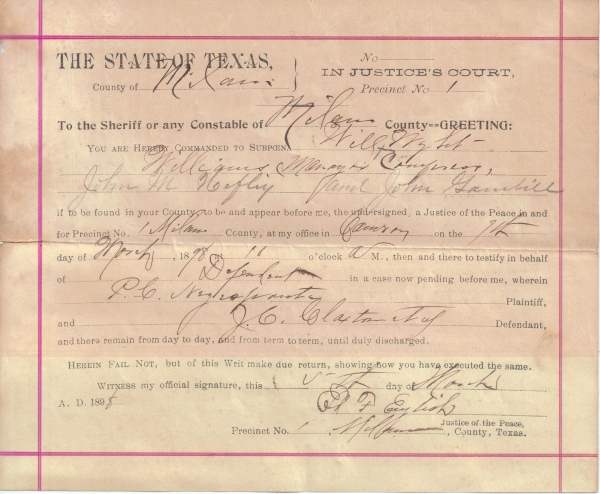 THE STATE OF TEXAS,
County of Milam
No
IN JUSTICE'S COURT,
Precinct No 1
To the Sheriff or any Constable of Milam County--GREETING:
YOU ARE HEREBY COMMANDED TO SUBPŒNA Will
Williams, Manager Compress,
John M Hefley and John Gambill
if to be found in your County, to be and appear before me, the undersigned, a Justice of the Peace in and
for Precinct No. 1 Milam County, at my office in Cameron on the 9th
day of March 1898 11 o'clock A M., then and there to testify in behalf
of Defendant in a case now pending before me, wherein
P. C. Plaintiff,
and J. C. Claxton Defendant,
and there remain from day to day, and from term to term, until duly discharged.
HEREIN FAIL NOT, but of this Writ make due return, showing how you have executed the same.
WITNESS my official signature, this day of March
A. D. 1898 English
Justice of the Peace,
Precinct No. 1 Milam, County, Texas.